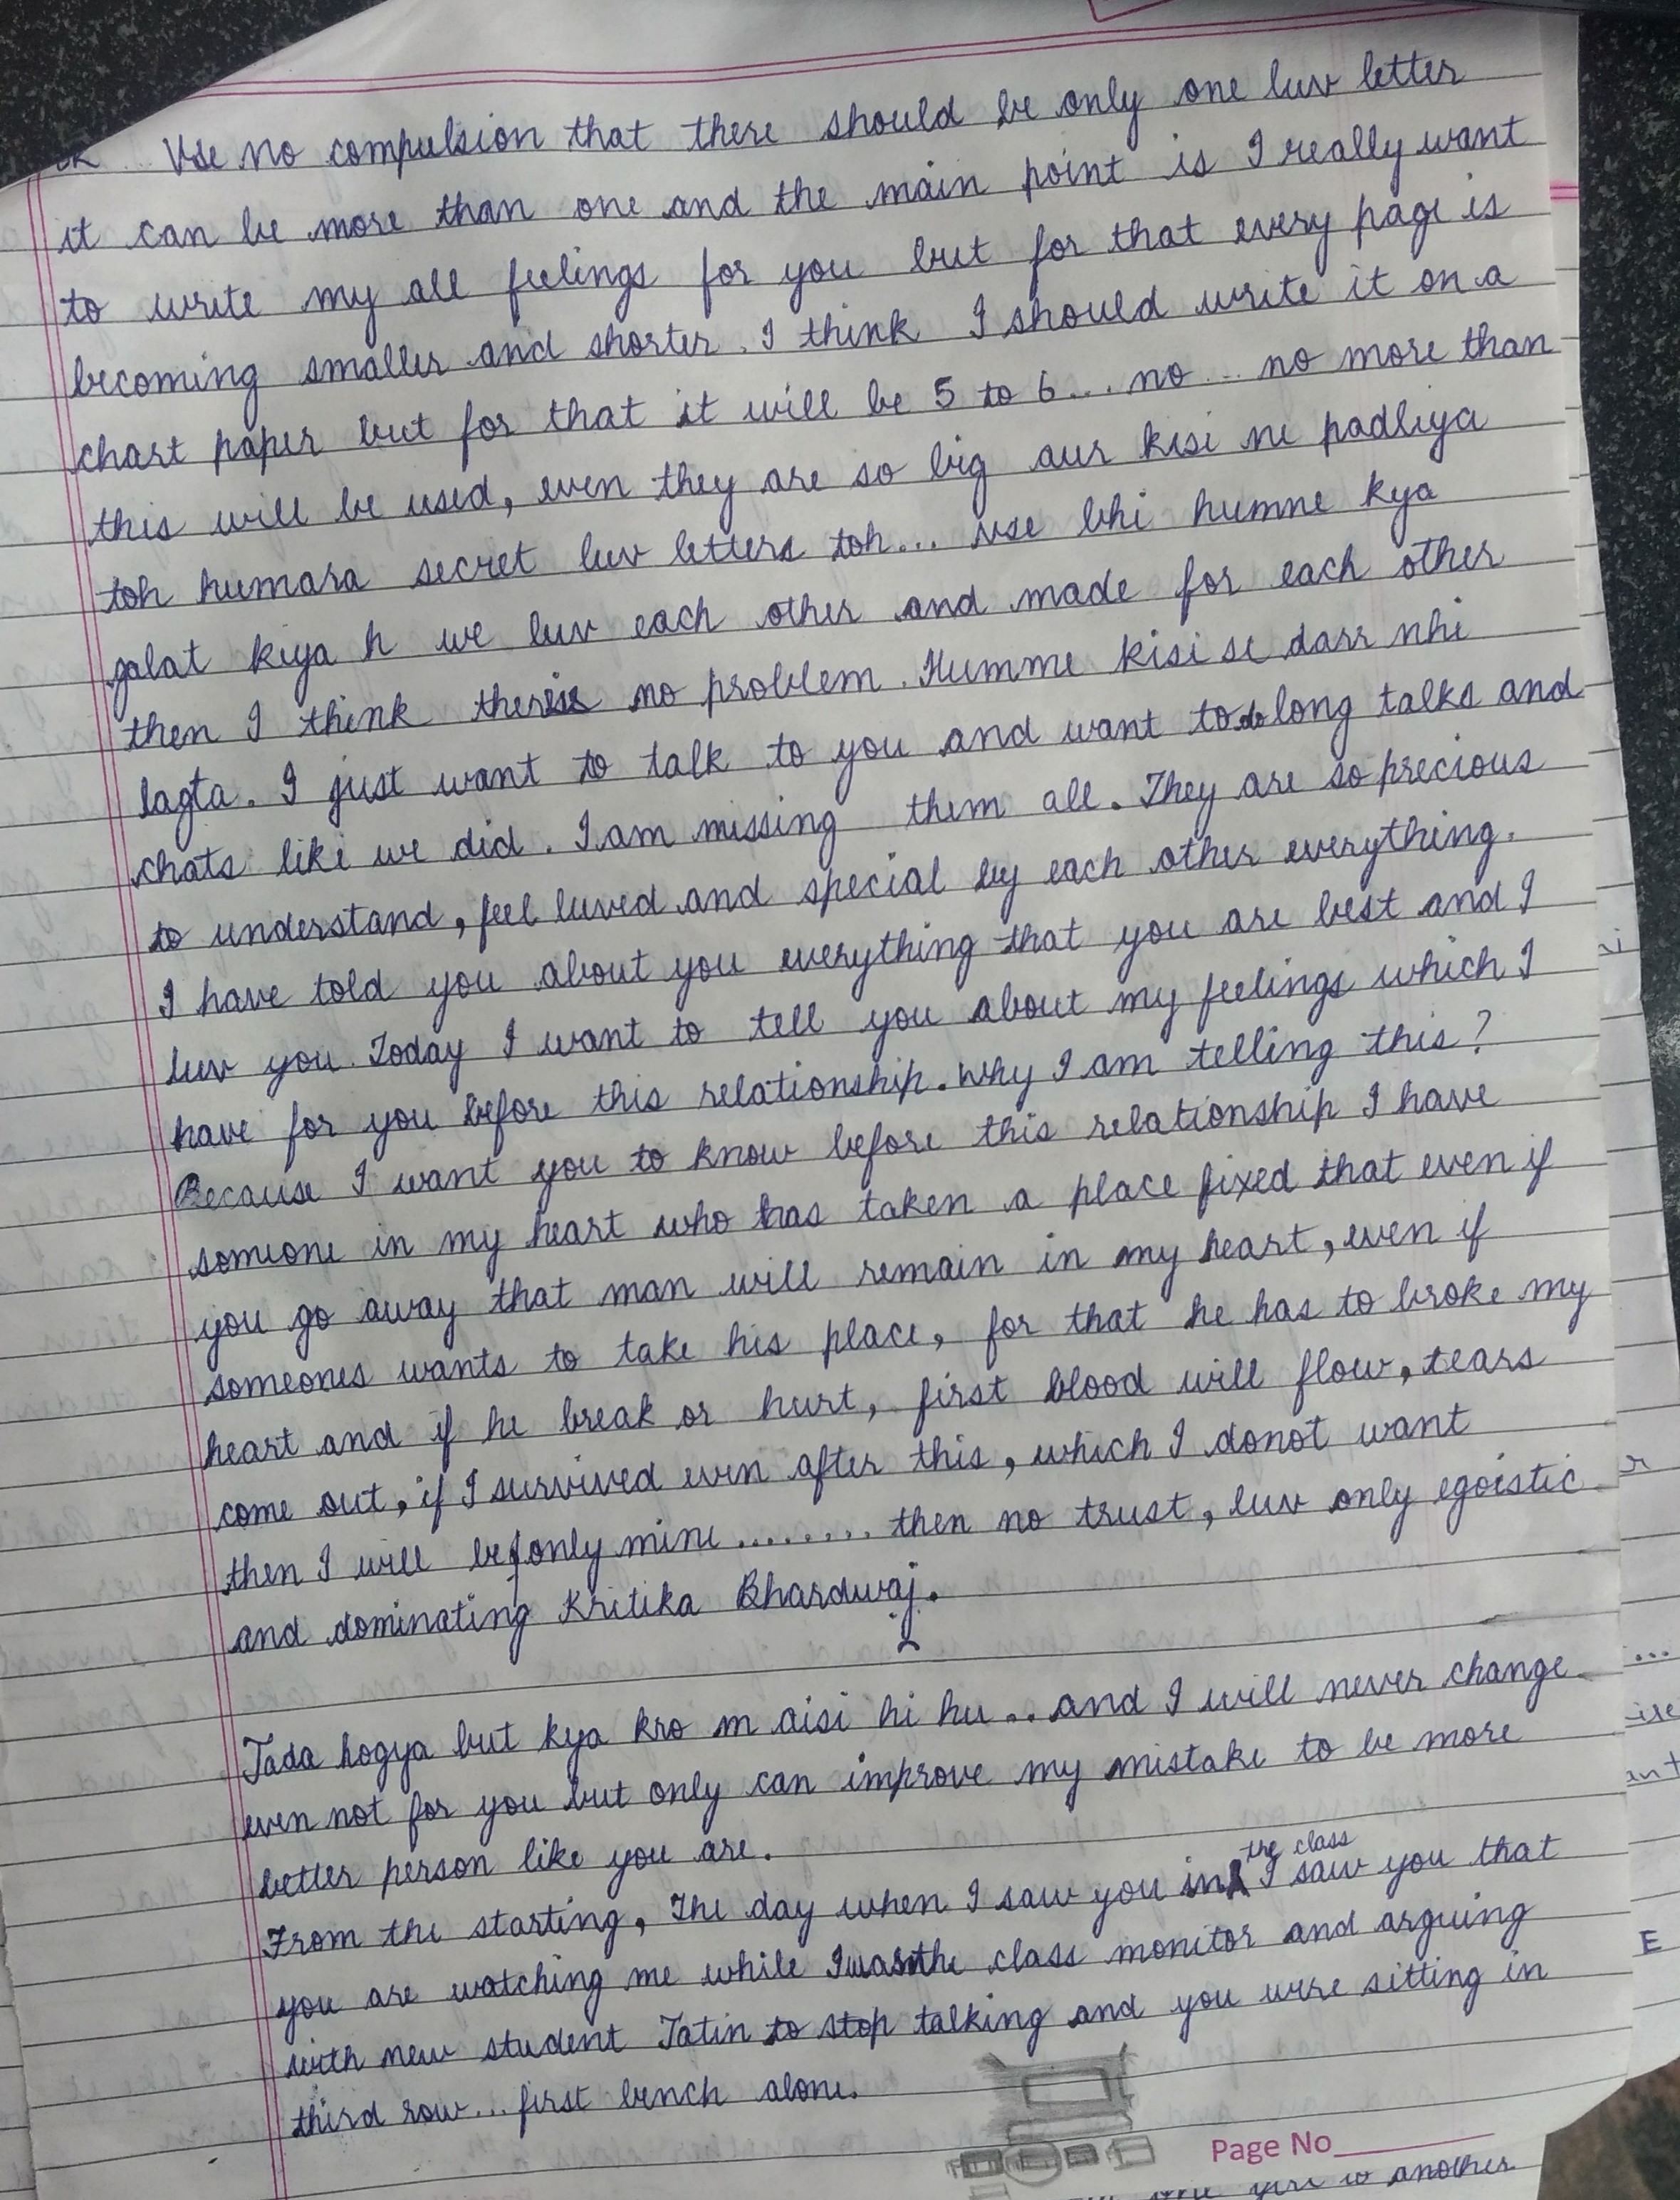 Vse no compulsion that there should be only one luv letter
it can be more than one and the main point is I really want
to write my all feelings for you but for that every page is
becoming smaller and shorter. I think I should write it on a
chart paper but for that it will be 5 to 6... no... no more than
this will be used, even they are so big aur kisi ne padliya
toh humara secret luv letters toh... vse bhi humne kya
galat kiya h we luv each other and made for each other
then I think there is no problem. Humme kisi se darr nhi
lagta. I just want to talk to you and want to do long talks and
chats like we did. I am missing them all. They are so precious
to understand, feel luved and special by each other everything.
I have told you about you everything that you are best and I
luv you. Today I want to tell you about my feelings which I
have for you before this relationship. Why I am telling this?
Because I want you to know before this relationship I have
someone in my heart who has taken a place fixed that even if
you go away that man will remain in my heart, even if
someones wants to take his place, for that he has to broke my
heart and if he break or hurt, first blood will flow, tears
come out, if I survived even after this, which I donot want
then I will be only mine ........ then no trust, luv only egoistic
and dominating Kritika Bhardwaj.
Jada hogya but kya kro m aisi hi hu... and I will never change
even not for you but only can improve my mistake to be more
better person like you are.
From the starting, The day when I saw you in the class I saw you that
you are watching me while I was the class monitor and arguing
with new student Jatin to stop talking and you were sitting in
third row... first bench alone.
Page No
to another